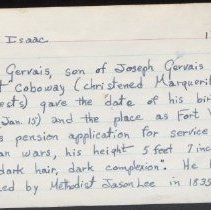 Isaac 1
Gervais, son of Joseph Gervais
t Coboway (christened Marguerit
ests) gave the date of his birt
Jan. 15) and the place as Fort V
s pension application for service
an wars, his height 5 feet 7 inc
dark hair, dark complexion". He
ed by Methodist Jason Lee in 1835